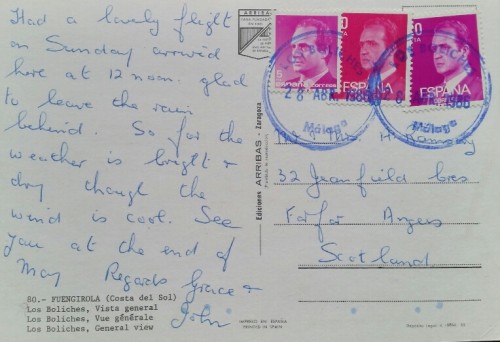 Had a lovely flight
on Sunday arrived
here at 12 noon. glad
to leave the rain
behind. So far the
weather is bright +
dry though the
wind is cool. See
you at the end of
May Regards Grace +
John
80.- FUENGIROLA (Costa del Sol)
Los Boliches, Vista general
Los Boliches, Vue générale
Los Boliches, General view
ARRIBAS
Ediciones ARRIBAS - Zaragoza
IMPRESO EN ESPAÑA
5
ESPAÑA
ESPAÑA
ESPAÑA
28 ABR. 1986
Málaga
Málaga
Mrs. H Ramsay
32 Jeanfield Cres
Forfar Angus
Scotland